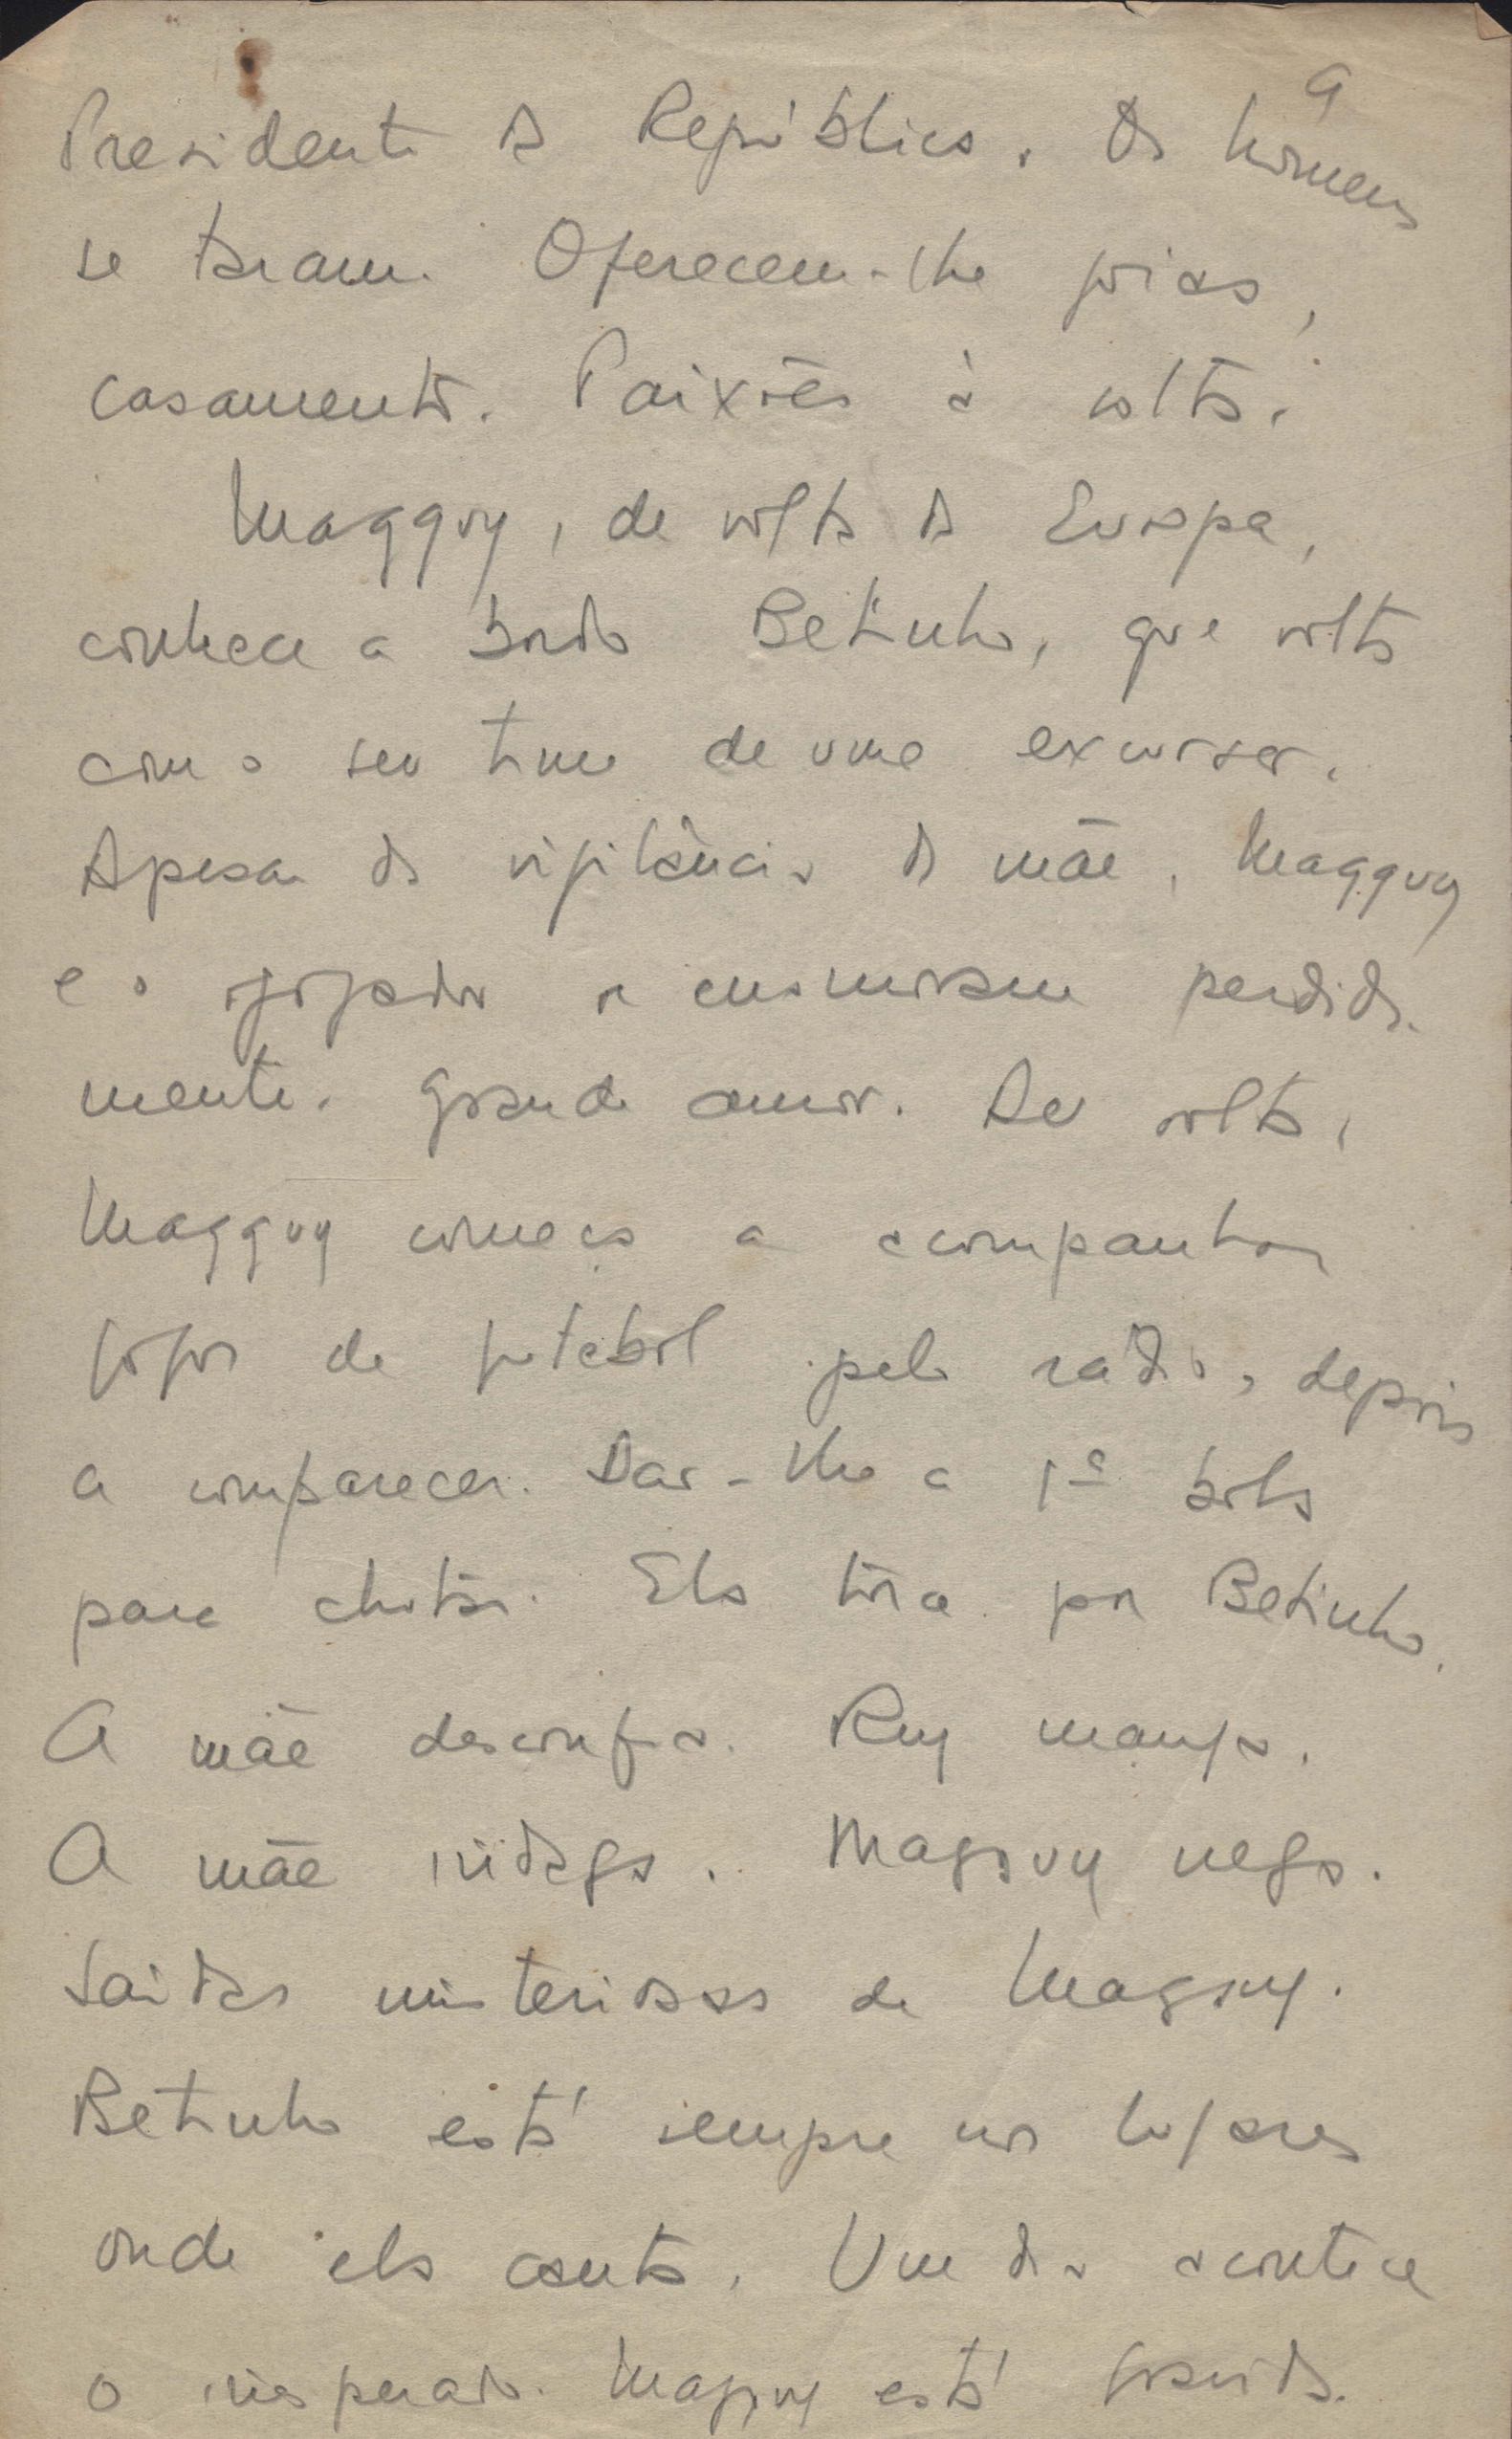 9
Presidente da República. Os homens
se taram. Oferecem-lhe joias,
casamento. Paixões à volta.
Magguy, de volta da Europa,
conhece a bordo Betinho, que volta
com o seu time de uma excursão.
Apesar da vigilância da mãe, Magguy
e o jogador se enamoram perdida-
mente. Grande amor. De volta,
Magguy começa a acompanhar
jogos de futebol pelo rádio, depois
a comparecer. Dar-lhe a 1ª bola
para chutar. Ela torce por Betinho.
A mãe desconfia. Ruy manja.
A mãe indaga. Magguy nega.
Saidas misteriosas de Magguy.
Betinho está sempre nos lugares
onde ela canta. Um dia acontece
o inesperado. Magguy está gravida.